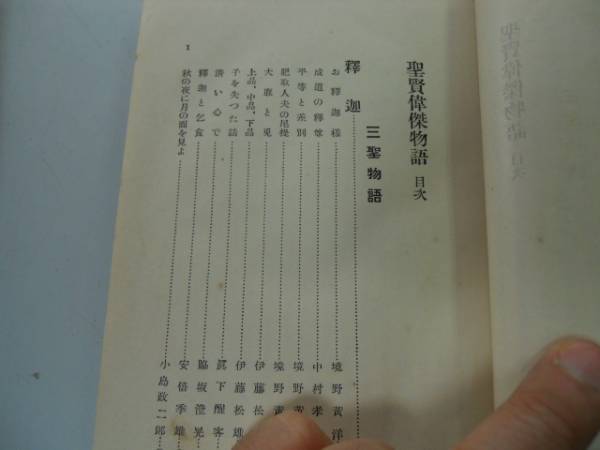 聖賢偉傑物語 目次
三聖物語
釋迦
お釋迦樣 境野黃洋
成道の釋尊 中村孝
平等と差別 境野黃
肥取人夫の尼提 境野黃
大龍と兎 伊藤松
上品、中品、下品 伊藤松雄
子を失つた話 眞下醒客
淸い心で 脇坂澄晃
釋迦と乞食 安倍季雄
秋の夜に月の面を見よ 小島政二郎
1